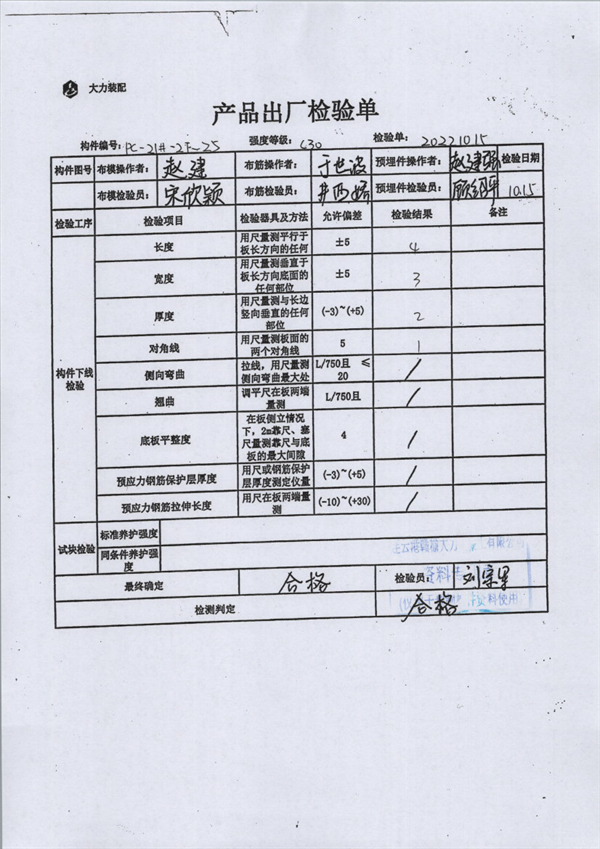 大力装配
产品出厂检验单
构件编号: PC-21#-2F-25 强度等级: C30 检验单: 20221015
构件图号 布模操作者: 赵建 布筋操作者: 于世波 预埋件操作者: 赵建强 检验日期
布模检验员: 宋欣颖 布筋检验员: 预埋件检验员: 1015
检验工序 检验项目 检验器具及方法 允许偏差 检验结果 备注
构件下线检验
长度 用尺量测平行于板长方向的任何 ±5 4
宽度 用尺量测垂直于板长方向底面的任何部位 ±5 3
厚度 用尺量测与长边竖向垂直的任何部位 (-3)~(+5) 2
对角线 用尺量测板面的两个对角线 5 1
侧向弯曲 拉线,用尺量测侧向弯曲最大处 L/750且 ≤20 /
翘曲 调平尺在板两端量测 L/750且 /
底板平整度 在板侧立情况下,2m靠尺、塞尺量测靠尺与底板的最大间隙 4 /
预应力钢筋保护层厚度 用尺或钢筋保护层厚度测定仪量 (-3)~(+5) /
预应力钢筋拉伸长度 用尺在板两端量测 (-10)~(+30) /
试块检验 标准养护强度
同条件养护强度
最终确定 合格 检验员:
检测判定 合格